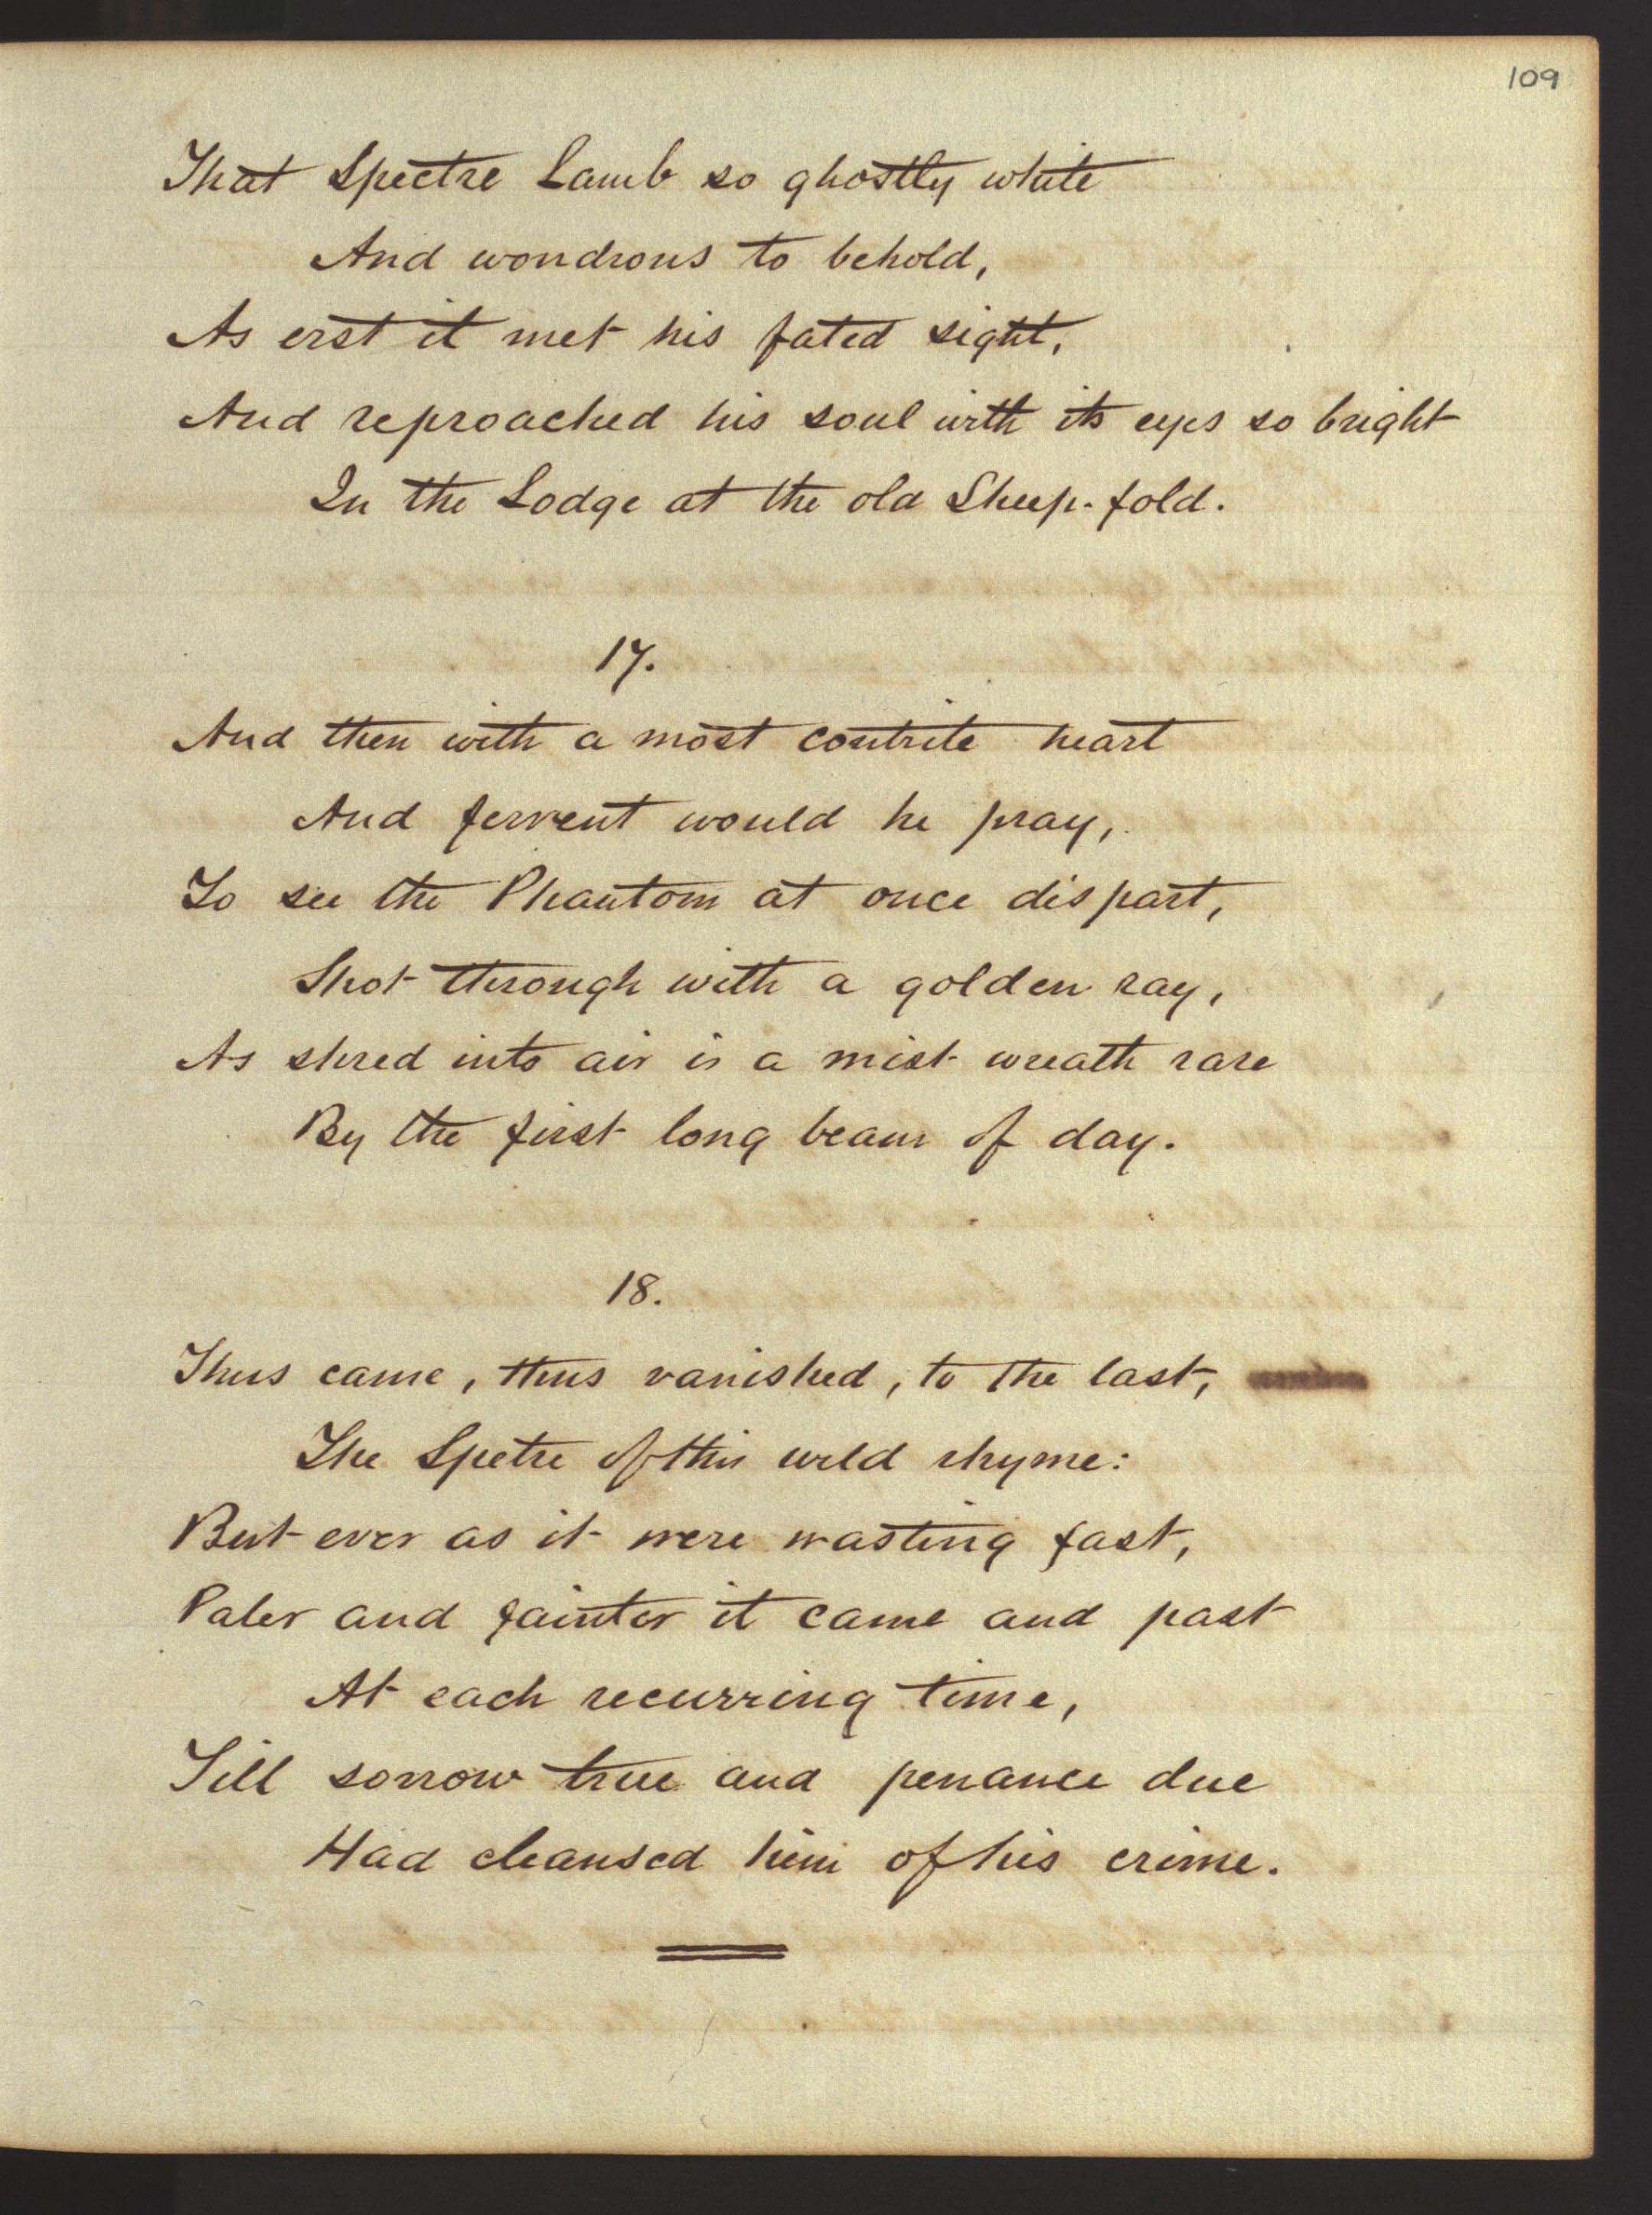 109
That Spectre Lamb so ghostly white
And wondrous to behold,
As erst it met his fated sight,
And reproached his soul with its eyes so bright
In the Lodge at the old Sheep-fold.
17.
And then with a most contrite heart
And fervent would he pray,
To see the Phantom at once dispart,
Shot through with a golden ray,
As shred into air is a mist-wreath rare
By the first long beam of day.
18.
Thus came, thus vanished, to the last,
The Spetre of this wild rhyme:
But ever as it were wasting fast,
Paler and fainter it came and past
At each recurring time,
Till sorrow true and penance due
Had cleansed him of his crime.